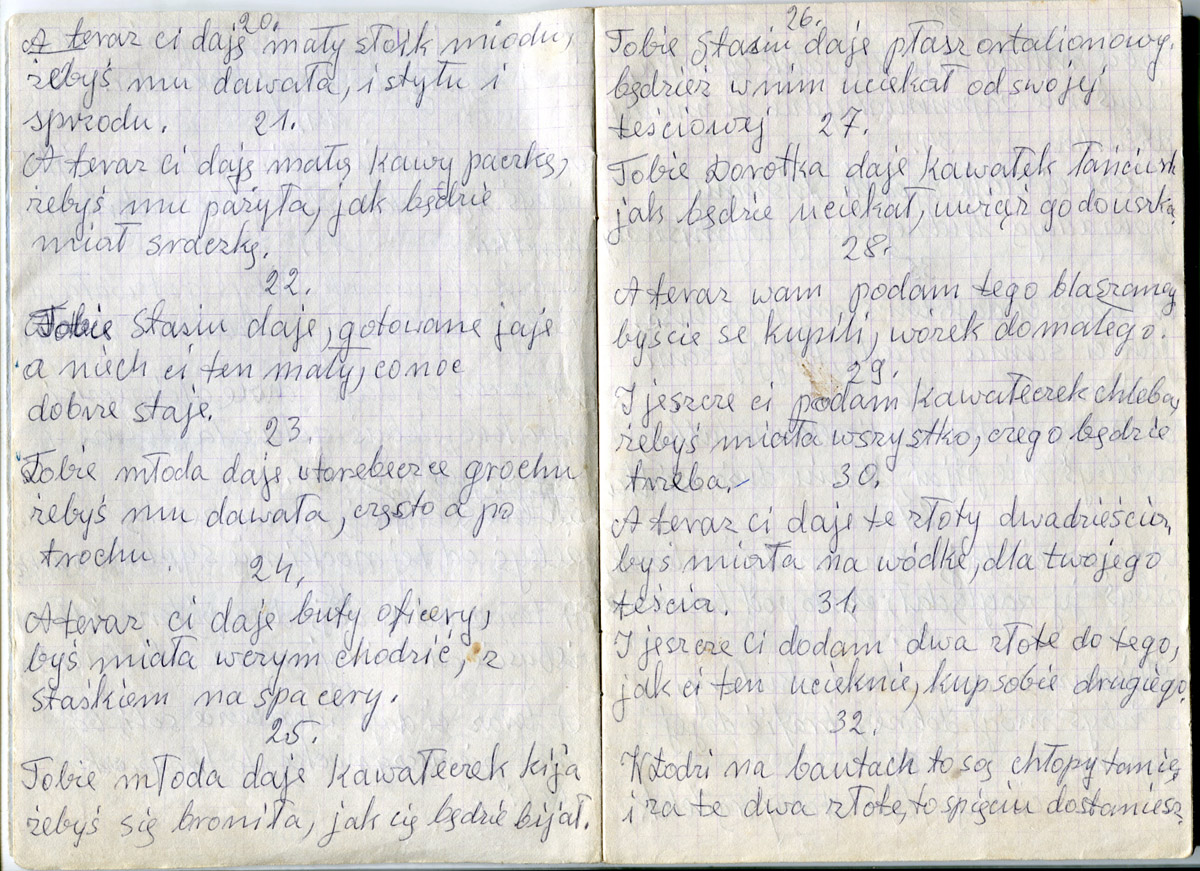 20.
A teraz ci daję mały słoik miodu,
żebyś mu dawała, i styłu i
sprzodu. 21.
A teraz ci daję małą kawy paczkę,
żebyś mu parzyła, jak będzie
miał sraczkę.
22.
Tobie Stasiu daję, gotowane jaje
a niech ci ten mały, co noc
dobrze staje.
23.
Tobie młoda daję utorebeczce grochu
żebyś mu dawała, często a po
trochu.
24.
A teraz ci daje buty oficery,
byś miała wczym chodzić, z
staśkiem na spacery.
25.
Tobie młoda daje kawałeczek kija
żebyś się broniła, jak cię będzie bijał.
26.
Tobie Stasiu daje płasz ortalionowy.
będziesz w nim uciekał od swojej
teściowej 27.
Tobie Dorotka daje kawałek łańcuszk
jak będzie uciekał, uwiąż go do uszka.
28.
A teraz wam podam tego blaszanego
byście se kupili, wózek do małego.
29.
I jeszcze ci podam kawałeczek chleba,
żebyś miała wszystko, czego będzie
trzeba. 30.
A teraz ci daje te złoty dwadzieścia,
byś miała na wódkę, dla twojego
teścia. 31.
I jeszcze ci dodam dwa złote do tego,
jak ci ten ucieknie, kup sobie drugiego.
32.
W Łodzi na bałutach to są chłopy tanie,
i za te dwa złote, to spięciu dostaniesz.